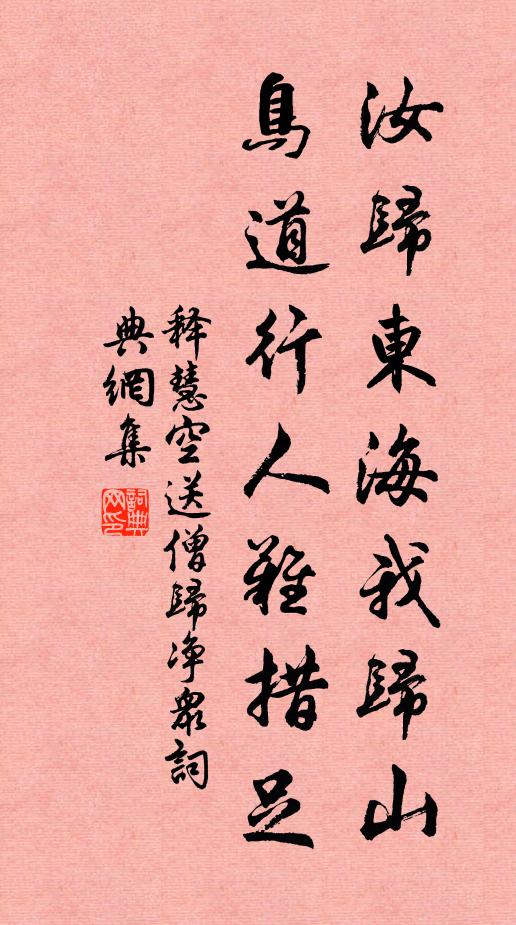 汝歸東海我歸山
鳥道行人難措足
释慧空送僧歸净衆詞
典網集
詞典網印